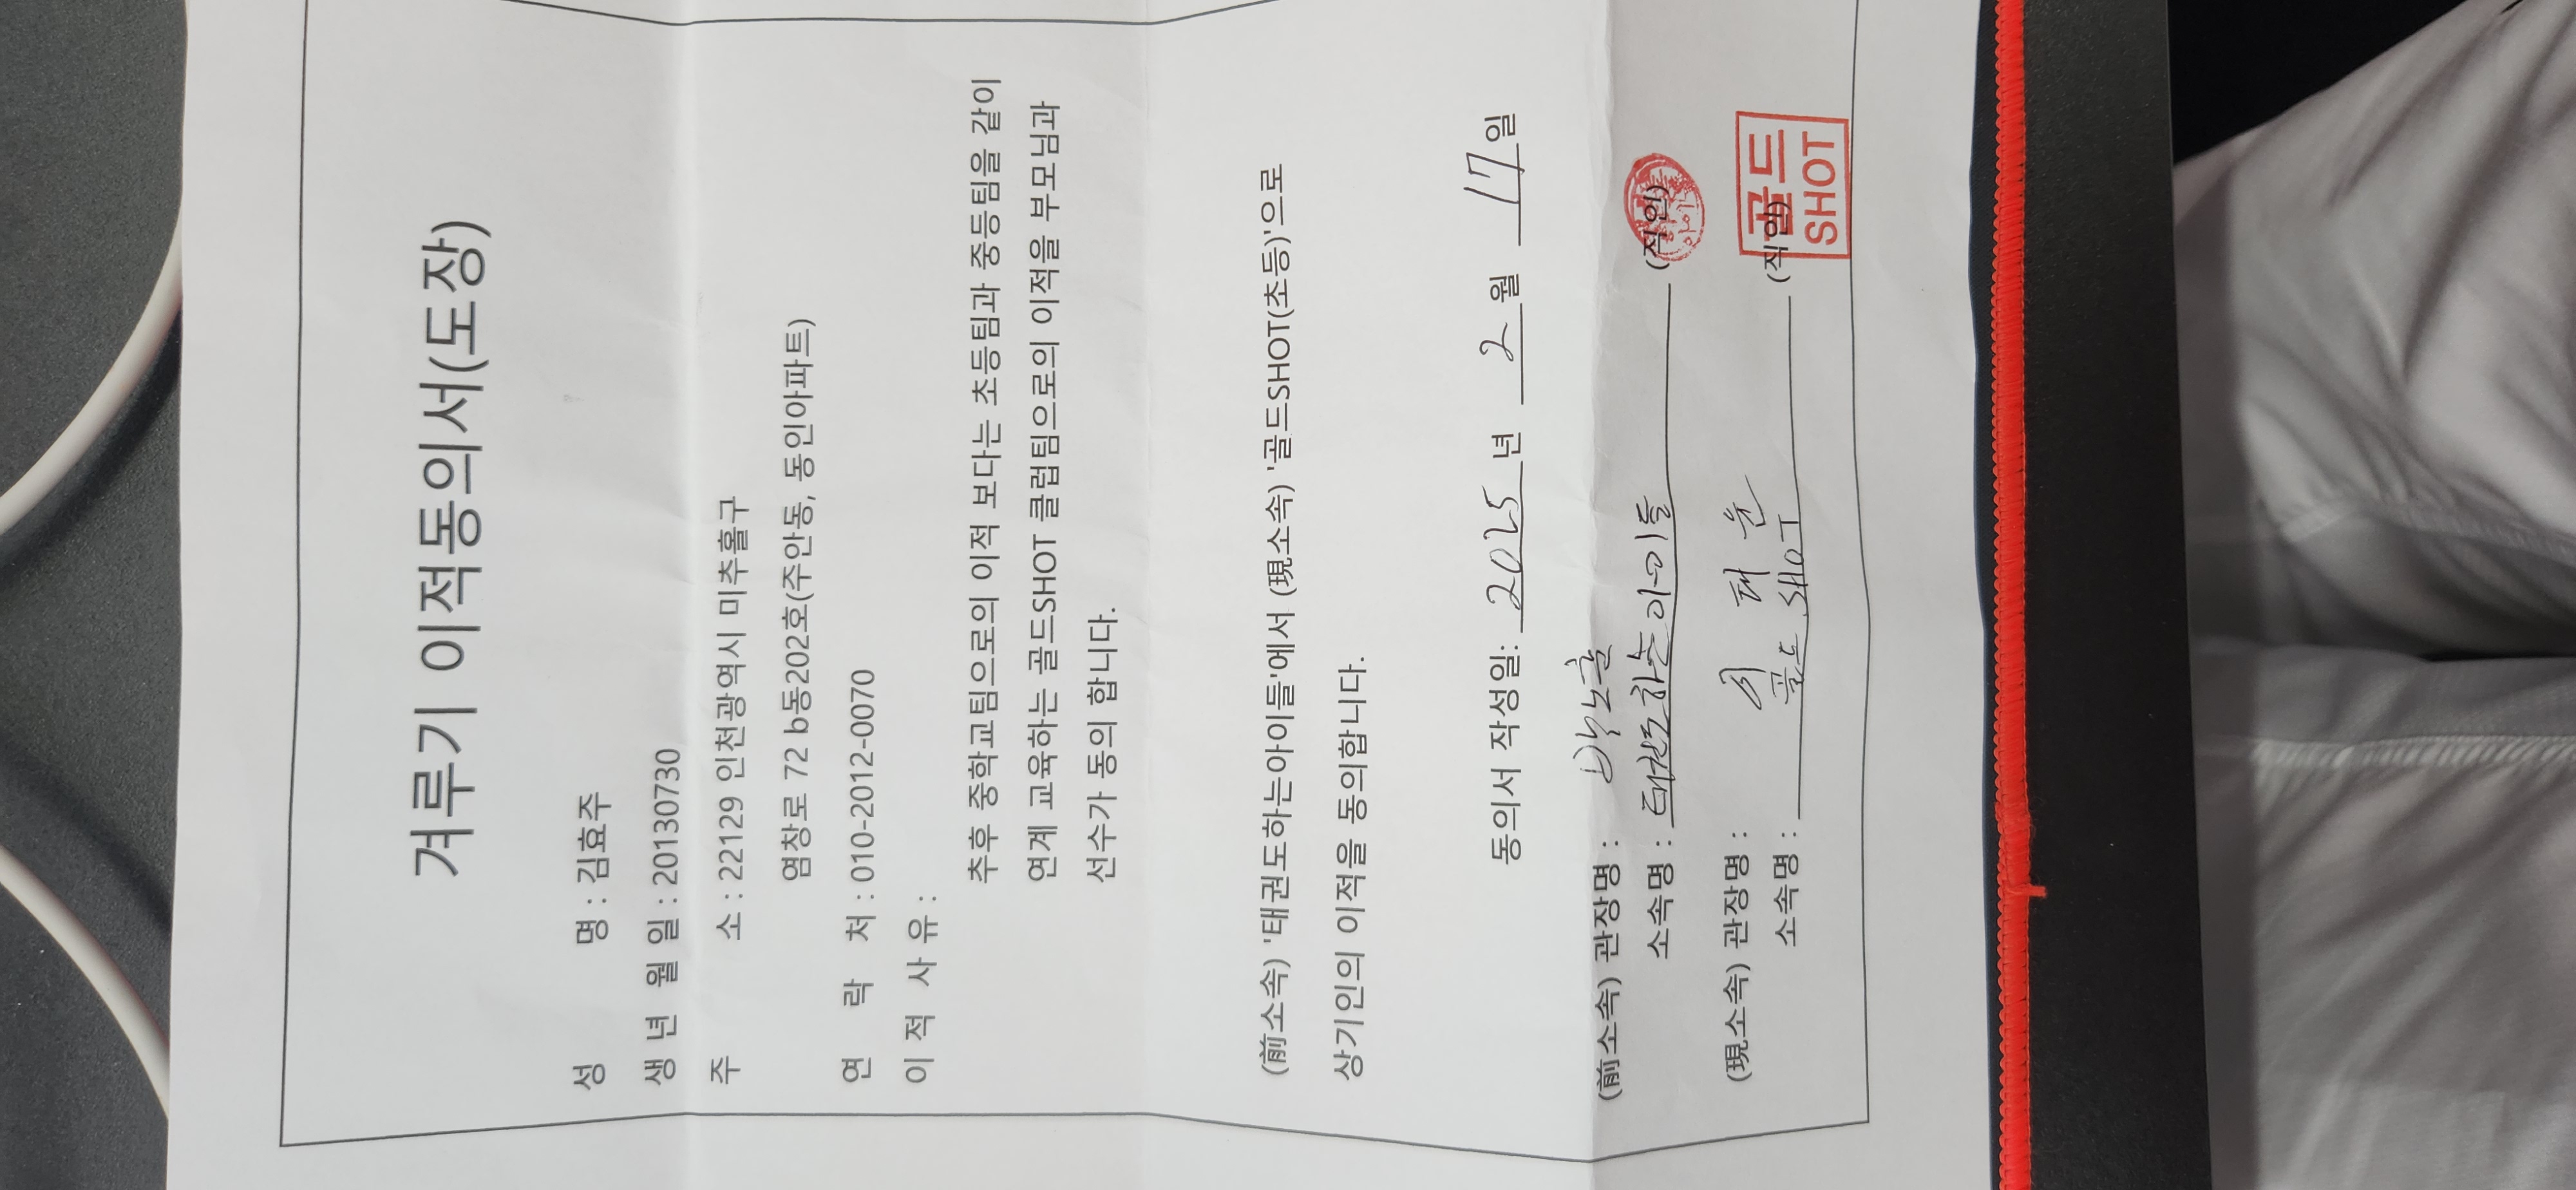 겨루기 이적동의서(도장)
성 명 : 김효주
생 년 월 일 : 20130730
주 소 : 22129 인천광역시 미추홀구
염창로 72 b동202호(주안동, 동인아파트)
연 락 처 : 010-2012-0070
이 적 사 유 :
추후 중학교팀으로의 이적 보다는 초등팀과 중등팀을 같이
연계 교육하는 골드SHOT 클럽팀으로의 이적을 부모님과
선수가 동의 합니다.
(前소속) '태권도하는아이들'에서 (現소속) '골드SHOT(초등)'으로
상기인의 이적을 동의합니다.
동의서 작성일: 2025 년 2 월 17 일
(前소속) 관장명 :
소속명 : 태권도하는아이들 (직인)
(現소속) 관장명 : 태운
소속명 : 골드 SHOT (직인)
골드
SHOT